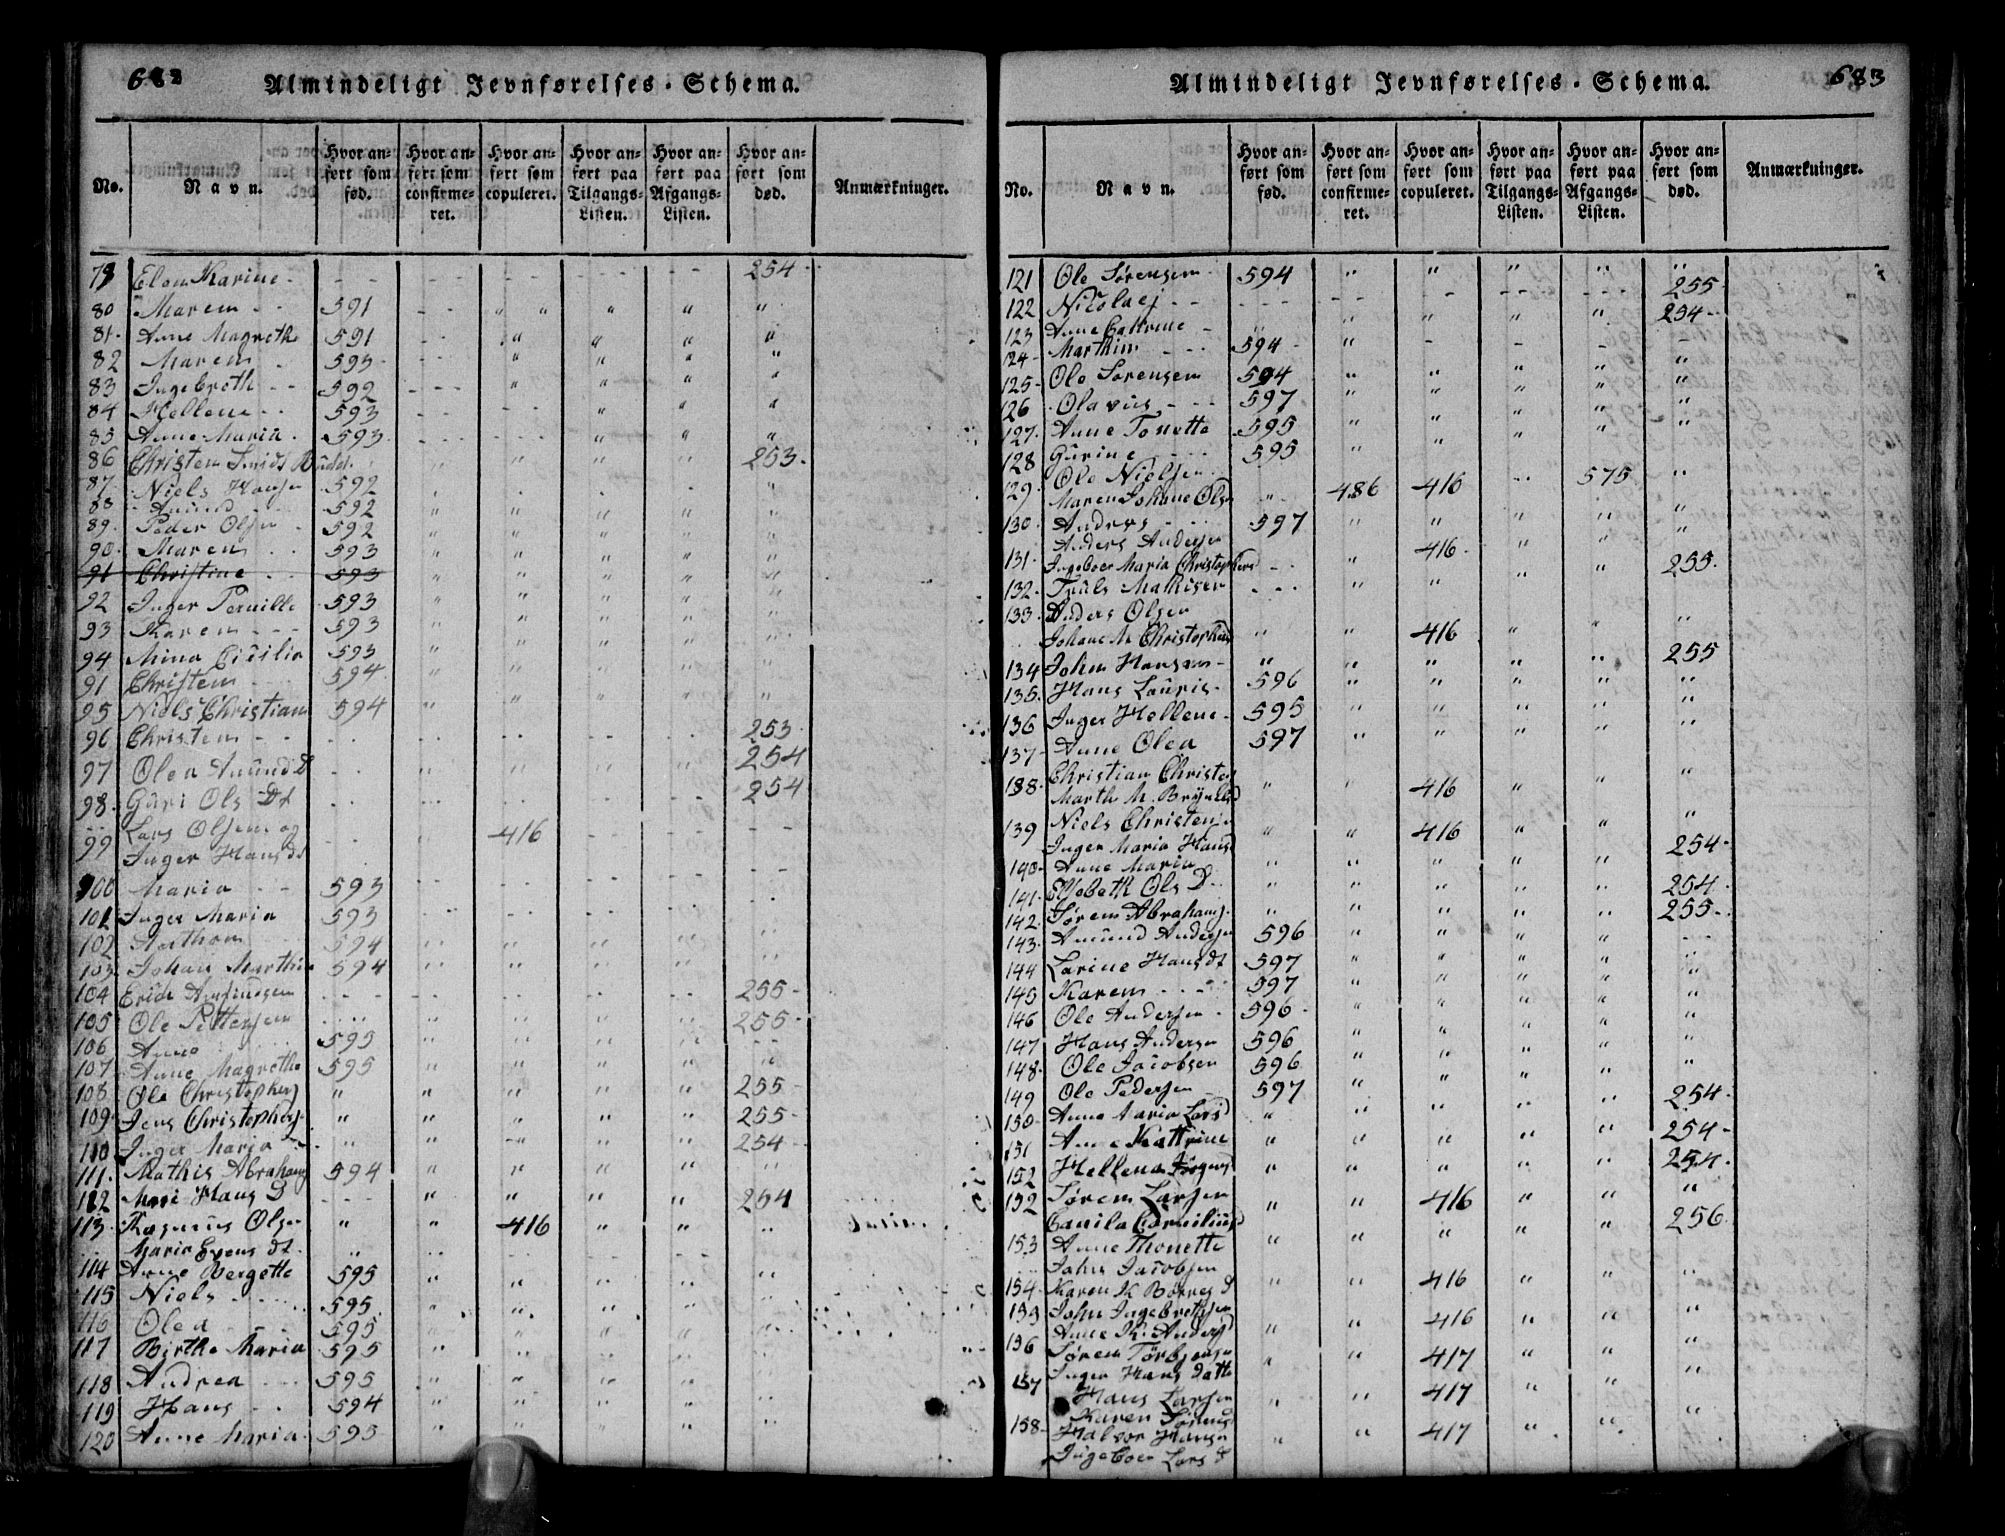 682
Almindeligt Jevnførelses-Schema.
No.
Navn.
Hvor anført som fød.
Hvor anført som confirmeret.
Hvor anført som copuleret.
Hvor anført paa Tilgangs-Listen.
Hvor anført paa Afgangs-Listen.
Hvor anført som død.
Anmærkninger.
79 Elen Karine - 254
80 Maren - 591
81 Anne Magrethe 591
82 Maren 593
83 Ingebreth - 592
84 Hellene - 593
85 Anne Maria 593
86 Christen Smids 253
87 Niels Hansen 592
88 Amund 592
89 Peder Olsen 592
90 Maren 593
91 Christine 593
92 Inger Pernille 593
93 Karen 593
94 Mina Cicilia 593
91 Christen 594
95 Niels Christian 594
96 Christen 253
97 Olea Amund D 254
98 Guri Ols Dt 254
99 Lars Olsen og 416
Inger Hans dt
100 Maria 593
101 Inger Maria 593
102 594
103 Johan Marthin 594
104 Erich 255
105 Ole Pettersen 255
106 Anne 595
107 Anne Magrethe 595
108 Ole Christophers 255
109 Jens Christophers 255
110 Inger Maria 254
111 Mathis Abrahams 594
112 Mari Hans D 254
113 Rasmus Olsen 416
Maria Evens dt.
114 Anne Bergette 595
115 Niels 595
116 Olea 595
117 Birthe Maria 595
118 Andrea 595
119 Hans 594
120 Anne Maria 595
683
Almindeligt Jevnførelses-Schema.
No.
Navn.
Hvor anført som fød.
Hvor anført som confirmeret.
Hvor anført som copuleret.
Hvor anført paa Tilgangs-Listen.
Hvor anført paa Afgangs-Listen.
Hvor anført som død.
Anmærkninger.
121 Ole Sørensen 594
122 Nicolaej 255
123 Anne Cathrine 254
124 Marthin 594
125 Ole Sørensen 594
126 Olavus 597
127 Anne Tonette 595
128 Gurine 595
129 Ole Nielsen
Maren Johane Ols 486 416 575
130 Anders 597
131 Anders Andersen 416
Ingeboer Maria Christophers
132 Truls Mathisen 255
133 Anders Olsen
Johane M Christophers 416
134 John Hansen 255
135 Hans Lauris 596
136 Inger Hellene 595
137 Anne Olea 597
138 Christian Christen
Marth M. 416
139 Niels Christensen 416
Inger Maria Hans
140 Anne Maria 254
141 Elsebeth Ols D 254
142 Søren Abrahams 255
143 Amund Andersen 596
144 Larine Hans dt 597
145 Karen 597
146 Ole Andersen 596
147 Hans Andersen 596
148 Ole Jacobsen 596
149 Ole Pedersen 597
150 Anne Maria Lars 254
151 Anne Kattrine 254
152 Hellena 254
152 Søren Larsen 416
153 Anne Thonette 256
John Jacobsen
154 Karen K D 416
155 John Ingebrethsen 416
Anne K. Anders
156 Søren 417
Inger Hans Datte
157 Hans Larsen 417
Karen
158 Halvor Hansen 417
Ingeboer Lars D